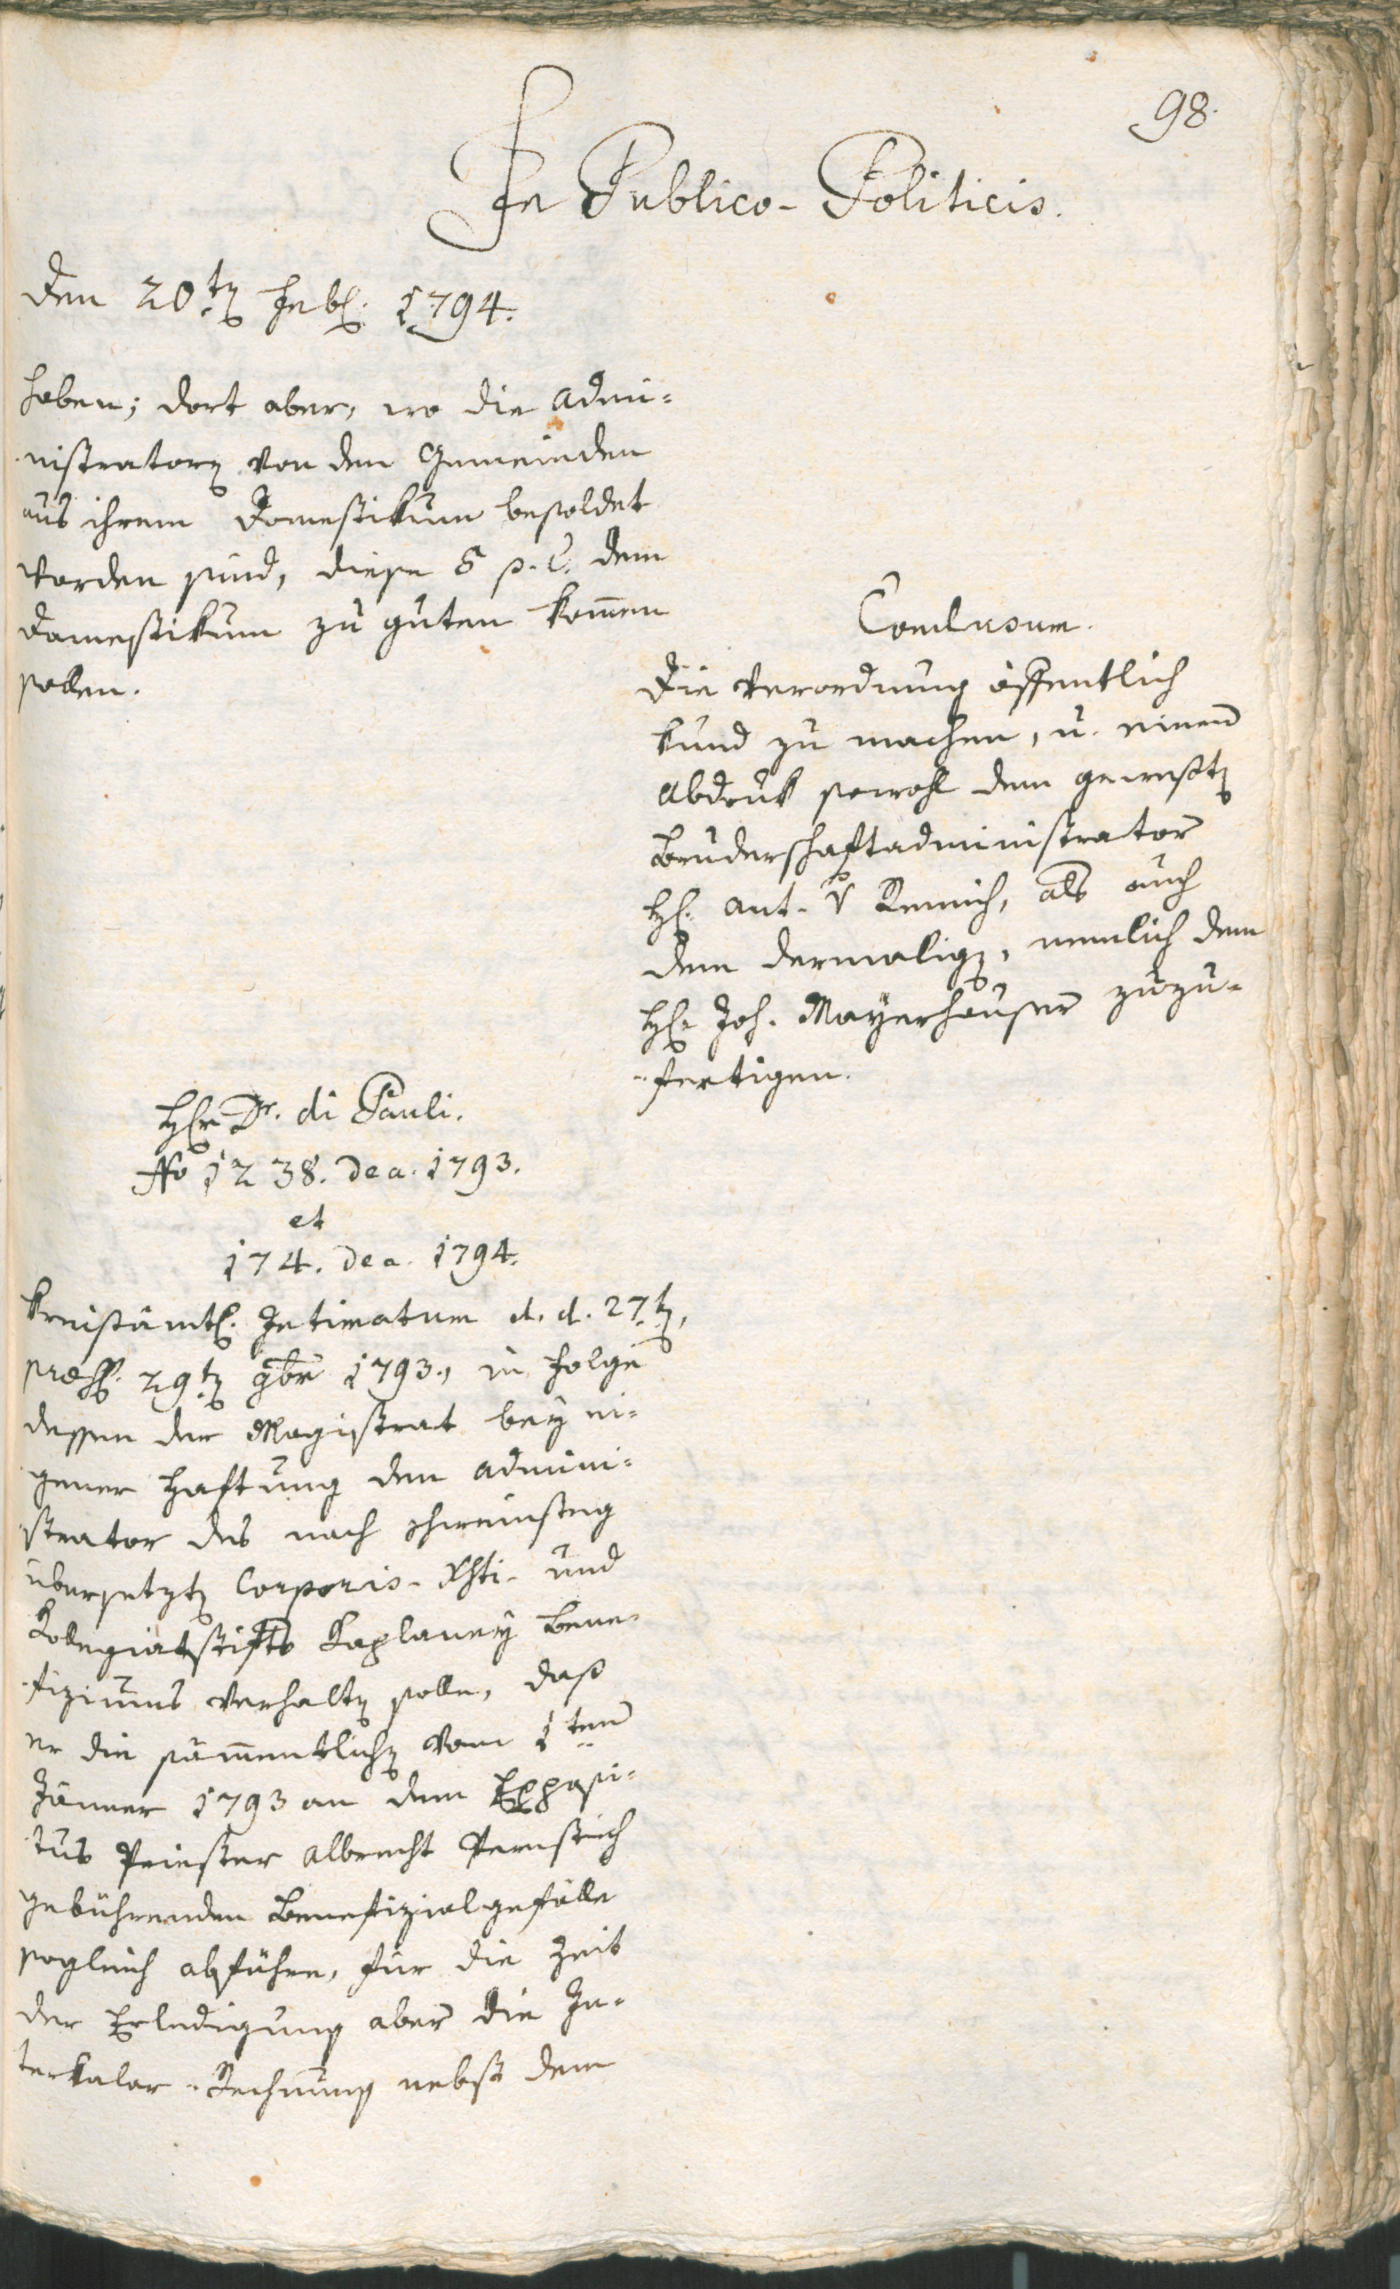 98.
In Publico-Politicis.
den 20ten Febr. 1794.
haben; dort aber, wo die Admi-
nistratorn von den Gemeinden
aus ihrem Domestikum besoldet
worden sind, diese 5 p. C. dem
Domestikum zu guten kommen
sollen.
Conclusum.
Die Verordnung öffentlich
kund zu machen, u. einen
Abdruk sowohl dem gewesten
Bruderschaftadministrator
H. Ant. v Remich, als auch
dem dermaligen, nemlich dem
H. Joh. Mayrhauser zuzu-
fertigen.
Hr Dr. di Pauli.
No 1238. de a. 1793.
et
174. de a. 1794.
Kreisämtl. Intimatum d. d. 27ten,
præs. 29ten 9br 1793., in Folge
dessen der Magistrat bey ei-
gener Haftung den Admini-
strator des nach
übersetzten Corporis-Xsti- und
Kollegiatstifts Kaplaney Bene-
fiziums verhalten solle, daß
er die sämmentlichen vom 1ten
Jänner 1793 an dem Exposi-
tus Priester Albrecht
gebührenden Benefizialgefälle
sogleich abführe, für die Zeit
der Erledigung aber die In-
terkalar-Rechnung nebst dem